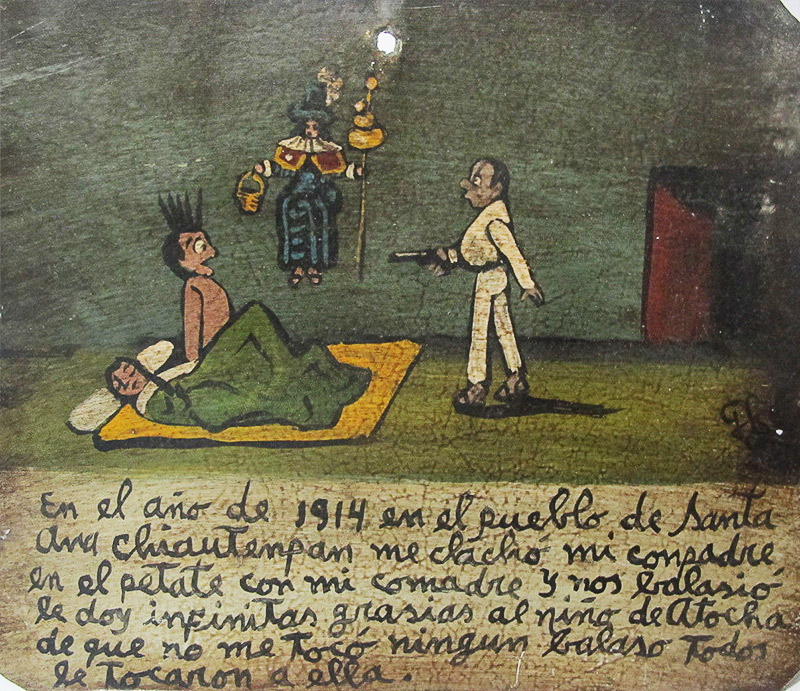 En el año de 1914 en el pueblo de Santa
Ana Chiautenpan me clachó mi conpadre
en el petate con mi comadre y nos balasió
le doy infinitas grasias al niño de Atocha
de que no me tocó ningun balaso Todos
le tocaron a ella.